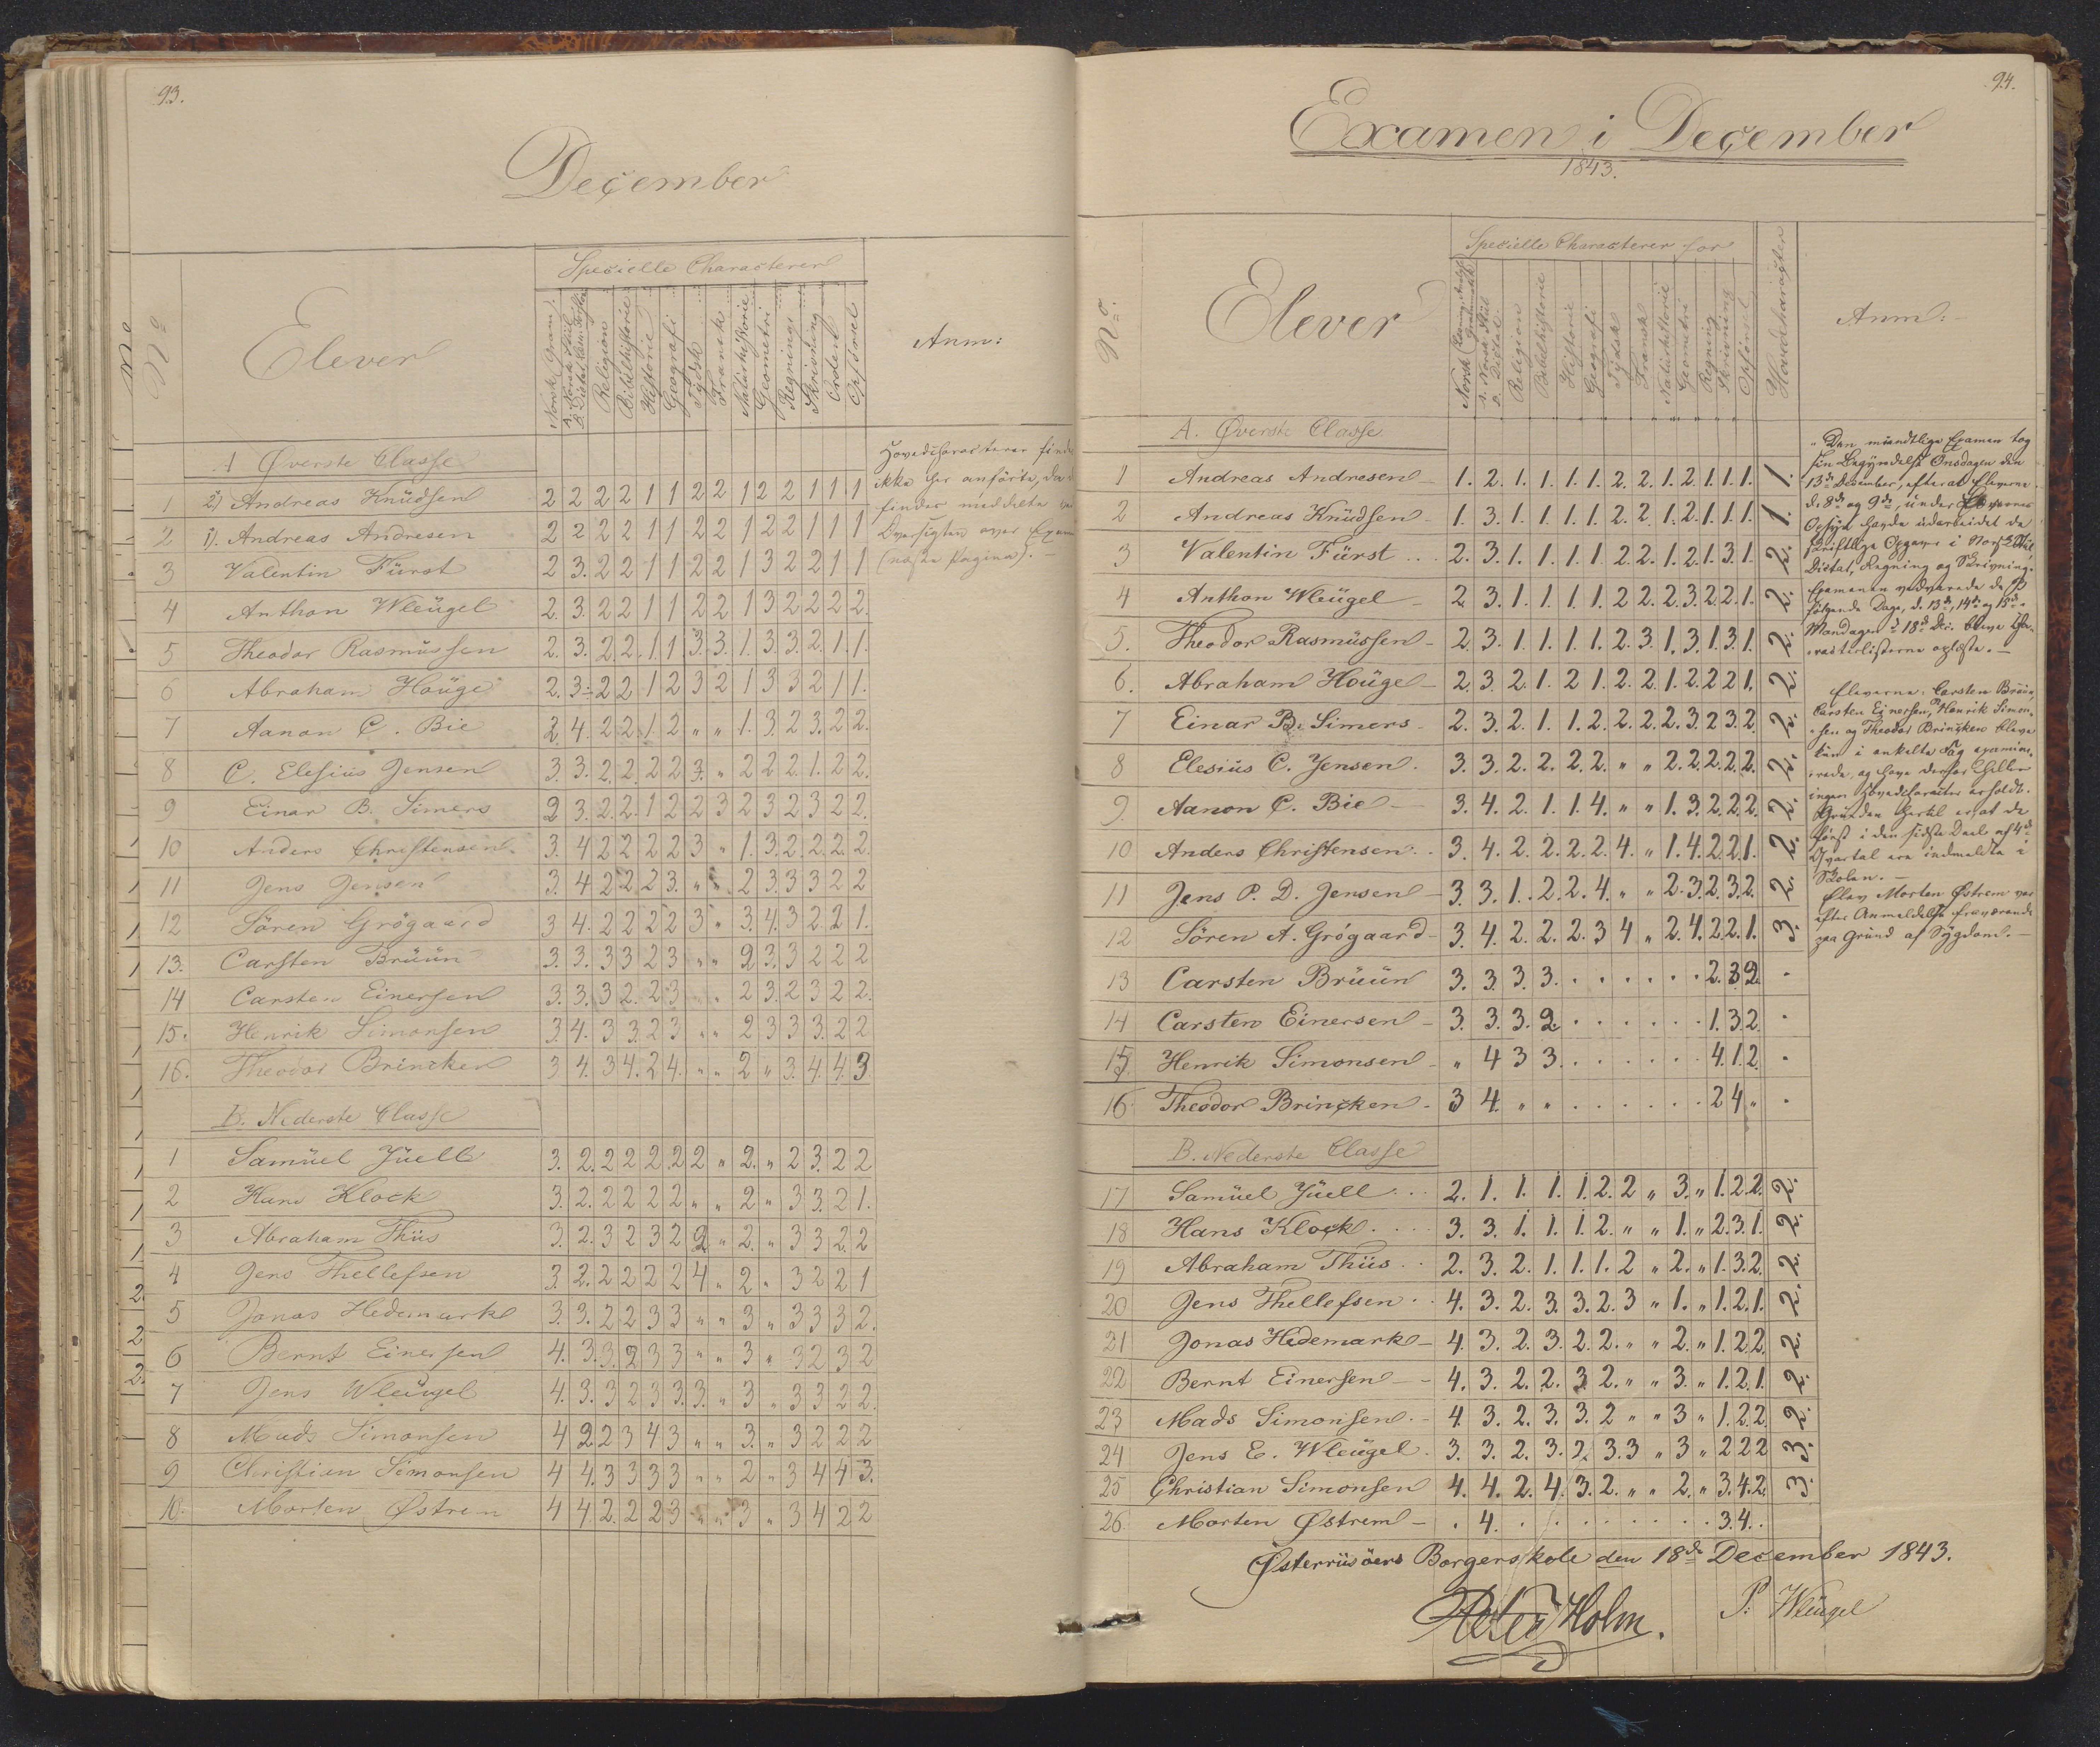 93.
December
No
Elever
Specielle Characterer
Anm:
Norsk (Gram)
Religion
Bibelhistorie
Historie
Geografi
Tydsk
Fransk
Naturhistorie
Geometri
Regning
Skrivning
Orden
Opførsel
A Øverste Classe
1 2) Andreas Knüdsen 2 2 2 2 1 1 2 2 1 2 2 1 1 1
2 1). Andreas Andresen 2 2 2 2 1 1 2 2 1 2 2 1 1 1
3 Valentin Fürst 2 3. 2 2 1 1 2 2 1 3 2 2 1 1
4 Anthon Wleügel 2. 3. 2 2 1 1 2 2 1 3 2 2 2 2.
5 Theodor Rasmüssen 2. 3. 2 2. 1. 1 3. 3. 1. 3. 3. 2. 1. 1.
6 Abraham Houge 2. 3. 2 2. 1 2 3 2 1 3 3 2 1 1.
7 Aanon C. Bie 2. 4. 2 2 1. 2 " " 1. 3. 2 3. 2 2.
8 C. Elesius Jensen 3. 3. 2. 2. 2 2 3. " 2 2 2. 1. 2 2.
9 Einar B. Simers 2 3. 2. 2. 1 2 2 3 2 3 2 3 2 2.
10 Anders Christensen. 3. 4 2 2 2 2 3 " 1. 3. 2. 2. 2. 2.
11 Jens Jensen 3. 4 2 2 2 3. " " 2 3. 3 3 2 2
12 Sören Grögaard 3 4. 2 2 2 2 3 " 3. 4. 3 2. 2. 1.
13. Carsten Brüün 3. 3. 3 3 2 3 " " 2 3. 3 2 2 2
14 Carsten Einersen 3. 3. 3 2. 2 3 " " 2 3. 2 3 2 2.
15. Henrik Simonsen 3. 4. 3 3. 2 3 " " 2 3 3 3. 2 2
16. Theodor Brincken 3 4. 3 4. 2 4. " " 2 " 3. 4. 4. 3
B. Nederste Classe
1 Samüel Jüell 3. 2. 2 2 2. 2 2 " 2. " 2 3. 2 2
2 Hans Klock 3. 2. 2 2 2 2 " " 2 " 3 3. 2 1.
3 Abraham Thiis 3. 2. 3 2 3 2 2 " 2. " 3 3 2. 2
4 Jens Thellefsen 3. 2. 2 2 2 2 4 " 2 " 3 2 2 1
5 Jonas Hedemark 3. 3. 2 2 3 3 " " 3 " 3 3 3 2.
6 Bernt Einersen 4. 3. 3. 2 3 3 " " 3 " 3 2 3 2
7 Jens Wleügel 4. 3. 3 2 3 3. 3. " 3 " 3 3 2 2.
8 Mads Simonsen 4 2 2 3 4 3 " " 3. " 3 2 2 2
9 Christian Simonsen 4 4. 3 3 3 3 " " 2 " 3 4 4 3.
10. Morten Østrem 4 4. 2. 2 2 3 " " 3 " 3 4 2 2
Hovedcharacterer finde
ikke her anförte, da
findes meddelte
Oversigten over Exam
(næste Pagina). —
94.
Examen i December
1843.
No.
Elever
Specielle Characterer for
Hovedcharacteer
Anm:
Norsk
Religion
Bibelhistorie
Historie
Geografi
Tydsk
Fransk
Naturhistorie
Geometri
Regning
Skrivning
Opførsel
A. Øverste Classe
1 Andreas Andresen 1. 2. 1. 1. 1. 1. 2. 2. 1. 2. 1. 1. 1. 1.
2 Andreas Knüdsen 1. 3. 1. 1. 1. 1. 2. 2. 1. 2. 1. 1. 1. 1.
3 Valentin Fürst 2. 3. 1. 1. 1. 1. 2. 2. 1. 2. 1. 3. 1. 2.
4 Anthon Wleügel 2. 3. 1. 1. 1. 1. 2 2. 2. 3. 2. 2. 1. 2.
5. Theodor Rasmüssen 2. 3. 1. 1. 1. 1. 2. 3. 1. 3. 1. 3. 1. 2.
6. Abraham Houge 2. 3. 2. 1. 2 1. 2. 2. 1. 2. 2 2 1. 2.
7 Einar B. Simers 2. 3. 2. 1. 1. 2. 2. 2. 2. 3. 2 3. 2 2.
8 Elesius C. Jensen. 3. 3. 2. 2. 2. 2. " " 2. 2. 2. 2. 2. 2.
9. Aanon C. Bie 3. 4. 2. 1. 1. 4. " " 1. 3. 2. 2. 2. 2.
10 Anders Christensen 3. 4. 2. 2. 2. 2. 4. " 1. 4. 2. 2. 1. 2.
11 Jens P. D. Jensen 3. 3. 1. 2. 2. 4. " " 2. 3. 2. 3. 2. 2.
12 Sören A. Grögaard 3. 4. 2. 2. 2. 3 4 " 2. 4. 2. 2. 1. 3.
13 Carsten Brüün 3. 3. 3. 3. . . . . . . 2. 3 2. .
14 Carsten Einersen 3. 3. 3. 2. . . . . . . 1. 3. 2. .
15 Henrik Simonsen " 4 3 3. . . . . . . 4. 1. 2. .
16 Theodor Brincken 3 4. " " . . . . . . 2 4 " .
B. Nederste Classe
17 Samüel Jüell 2. 1. 1. 1. 1. 2. 2 " 3. " 1. 2. 2. 2.
18 Hans Klock 3. 3. 1. 1. 1. 2. " " 1. " 2. 3. 1. 2.
19 Abraham Thiis 2. 3. 2. 1. 1. 1. 2 " 2. " 1. 3. 2. 2.
20 Jens Thellefsen 4. 3. 2. 3. 3. 2. 3 " 1. " 1. 2. 1. 2.
21 Jonas Hedemark 4. 3. 2. 3. 2. 2. " " 2. " 1. 2. 2. 2.
22 Bernt Einersen 4. 3. 2. 2. 3. 2. " " 3. " 1. 2. 1. 2.
23 Mads Simonsen. 4. 3. 2. 3. 3. 2 " " 3 " 1. 2. 2. 2.
24 Jens E. Wleügel. 3. 3. 2. 3. 2. 3. 3 " 3 " 2 2 2 3.
25 Christian Simonsen 4. 4. 2. 4. 3. 2. " " 2. " 3. 4. 2. 3.
26 Morten Østrem . 4. . . . . . . . . 3. 4. .
Den mündtlige Examen tog
sin Begyndelse Onsdagen den
13de December, efterat Eleverne
d. 8de og 9de, under
Opsyn havde üdarbeidet de
skriftlige Opgaver i Norsk Stiil,
Dictat, Regning og Skrivning.
Examenen vedvarede de
følgende Dage, d. 13de, 14de og 15de.
Mandagen d. 18de Dec. bleve Cha-
racterlisterne oplæste. —
Eleverne: Carsten Brüün,
Carsten Einersen, Henrik Simon-
sen og Theodor Brincken bleve
kün i enkelte Fag examine-
rede, og have derfor heller
ingen Hovedcharacter erholdt.
Grunden hertil er at de
først i den sidste Deel af 4de
Qvartal ere indmeldte i
Skolen. —
Elev Morten Østrem var
efter Anmeldelse fraværende
paa Grund af Sygdom. —
Østerriisöers Borgerskole den 18de December 1843.
Peter Holm. P. Wleügel